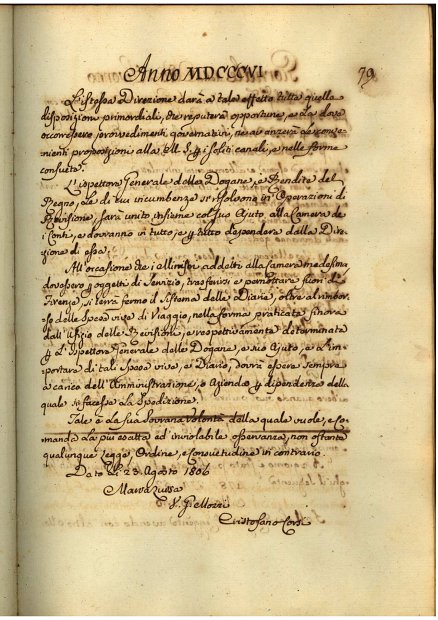 Anno MDCCCVI
79
L'istessa Direzione darà a tale effetto tutte quelle
disposizioni primordiali, che reputerà opportune, e là dove
occorressero provvedimenti governativi, ne avanzerà le conve-
nienti proposizioni alla M. S. p i soliti canali, e nelle forme
consuete.
L'ispettore Generale delle Dogane, e Rendite del
Regno, le di cui incumbenze si risolvono in Operazioni di
Revisione, sarà unito, insieme col suo Ajuto alla Camera de
Conti, e dovranno in tutto, e p tutto dependere dalla Dire-
zione di essa.
All'occasione che i Ministri addetti alla Camera medesima
dovessero p oggetti di Servizio, trasferirsi e pernottare fuori di
Firenze, si terrà fermo il Sistema delle Diarie, oltre al rimbor-
so delle Spese vive di Viaggio, nella forma praticata sinora
dall'Ufizio delle Revisioni, e respettivamente determinata
p L'Ispettore Generale delle Dogane, e suo Ajuto, e L'im-
portare di tali Spese vive, e Diarie, dovrà essere sempre
a carico dell'Amministrazione, o Azienda p dipendenza della
quale si facesse la Spedizione.
Tale è la sua Sovrana Volontà della quale vuole, e co-
manda la più esatta ed inviolabile osservanza, non ostante
qualunque Legge, Ordine, e Consuetudine in contrario
Dato Li 23. Agosto 1806
Maria Luisa
Cristofano Corsi